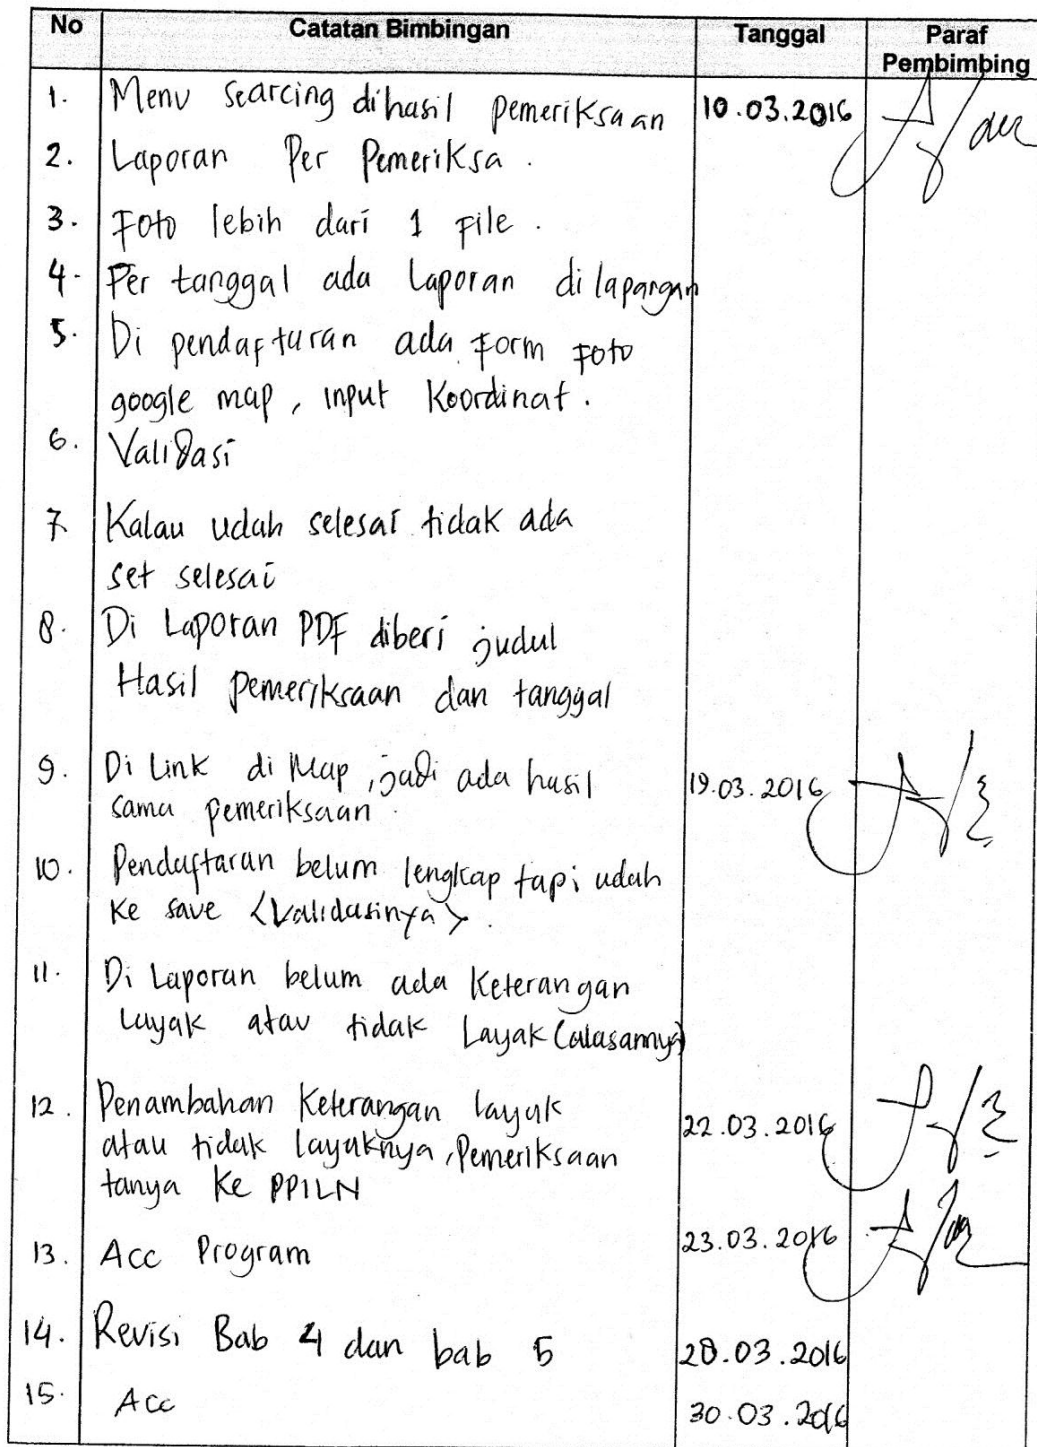 No Catatan Bimbingan Tanggal Paraf Pembimbing
1. Menu searcing dihasil pemeriksaan 10.03.2016
2. Laporan Per Pemeriksa.
3. Foto lebih dari 1 File.
4. Per tanggal ada Laporan di lapangan
5. Di pendafturan ada Form Foto
google map, input Koordinat.
6. Validasi
7. Kalau udah selesai tidak ada
set selesai
8. Di Laporan PDF diberi judul
Hasil pemeriksaan dan tanggal
9. Di Link di Map, jadi ada hasil 19.03.2016
sama pemeriksaan.
10. Pendaftaran belum lengkap tapi udah
ke save <Validasinya>.
11. Di Laporan belum ada Keterangan
Layak atau tidak Layak (alasannya)
12. Penambahan Keterangan layak
atau tidak layaknya, Pemeriksaan 22.03.2016
tanya Ke PPILN
13. Acc Program 23.03.2016
14. Revisi Bab 4 dan bab 5 28.03.2016
15. Acc 30.03.2016